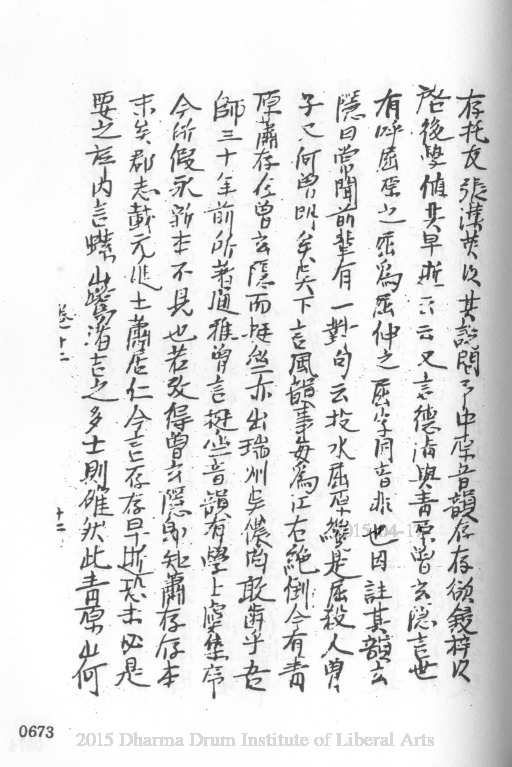 存托友張漢英以其說問予中原音韻存存欲鋟梓以
啓後學值其早逝云云又言德清與青原曾玄隱言世
有呼屈原之屈為屈伸之屈字同音非也因註其韻玄
隱曰嘗聞前輩有一對句云投水屈原纔是屈殺人曾
子又何曾明矣吳下言風韻事每為江右絕倒今有青
原蕭存存曾玄隱而挺坐亦出瑞州吳儂尚敢齒乎吾
師三十年前所著通雅曾言挺坐音韻有學士寧集席
今所假永新本不見也若攷得曾玄隱即知蕭存存本
末矣郡志載元進士蕭居仁今言存存早逝恐未必是
要之在內言螺山鷺渚言之多士則確然此青原山何
卷十二
十二
0673
2015 Dharma Drum Institute of Liberal Arts